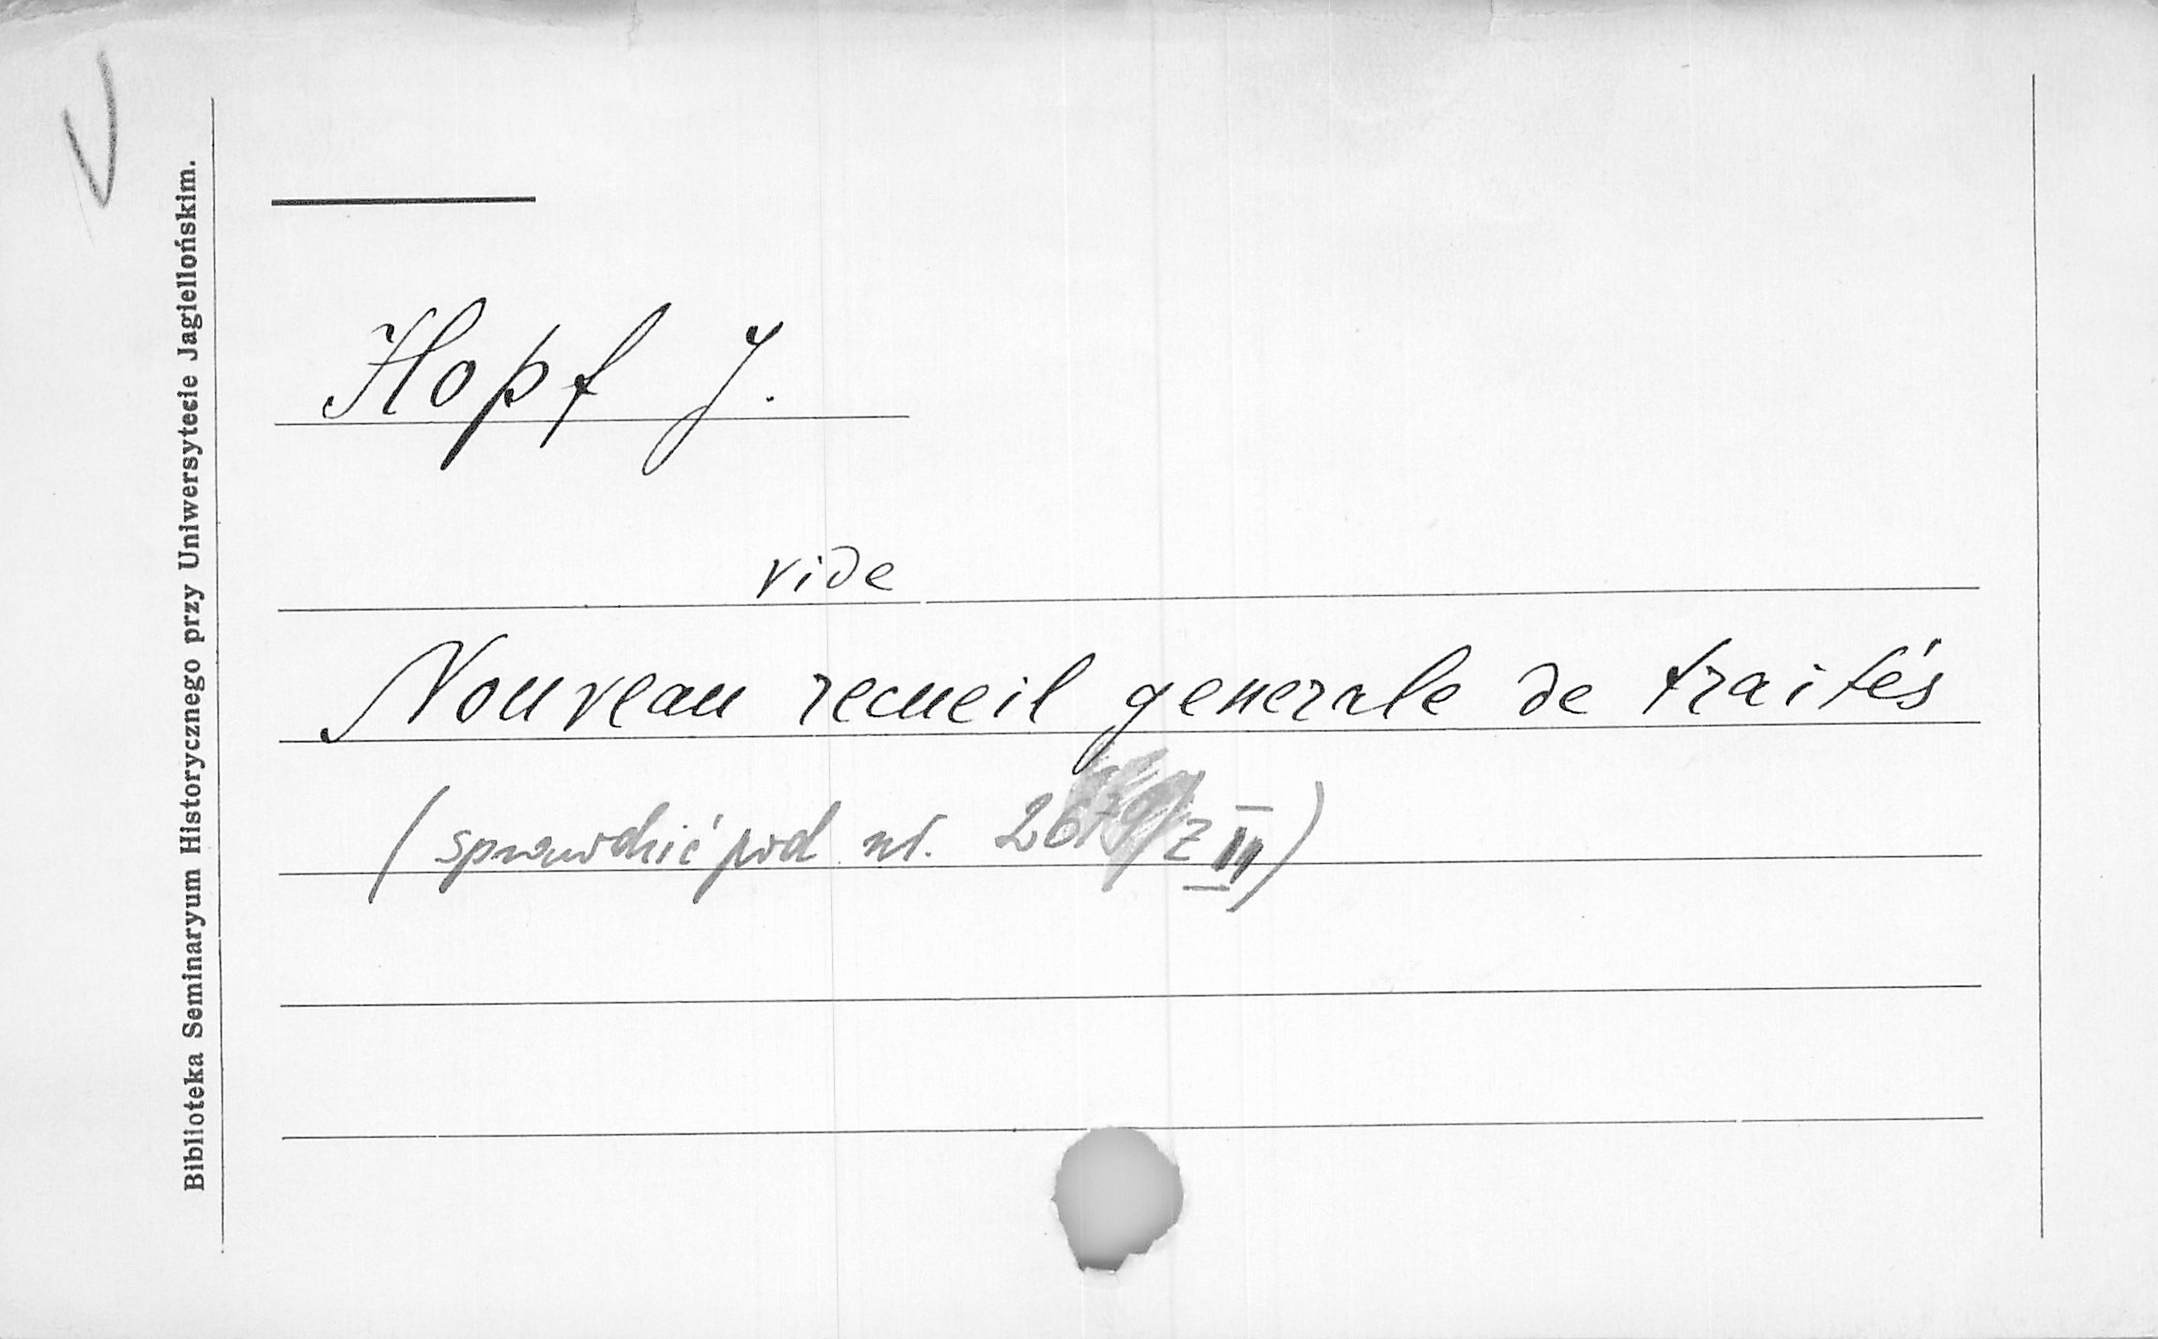 Biblioteka Seminaryum Historycznego przy Uniwersytecie Jagiellońskim.
Hopf J.
vide
Nouveau recueil generale de traités
(sprawdzić pod nr. 2679/z III)